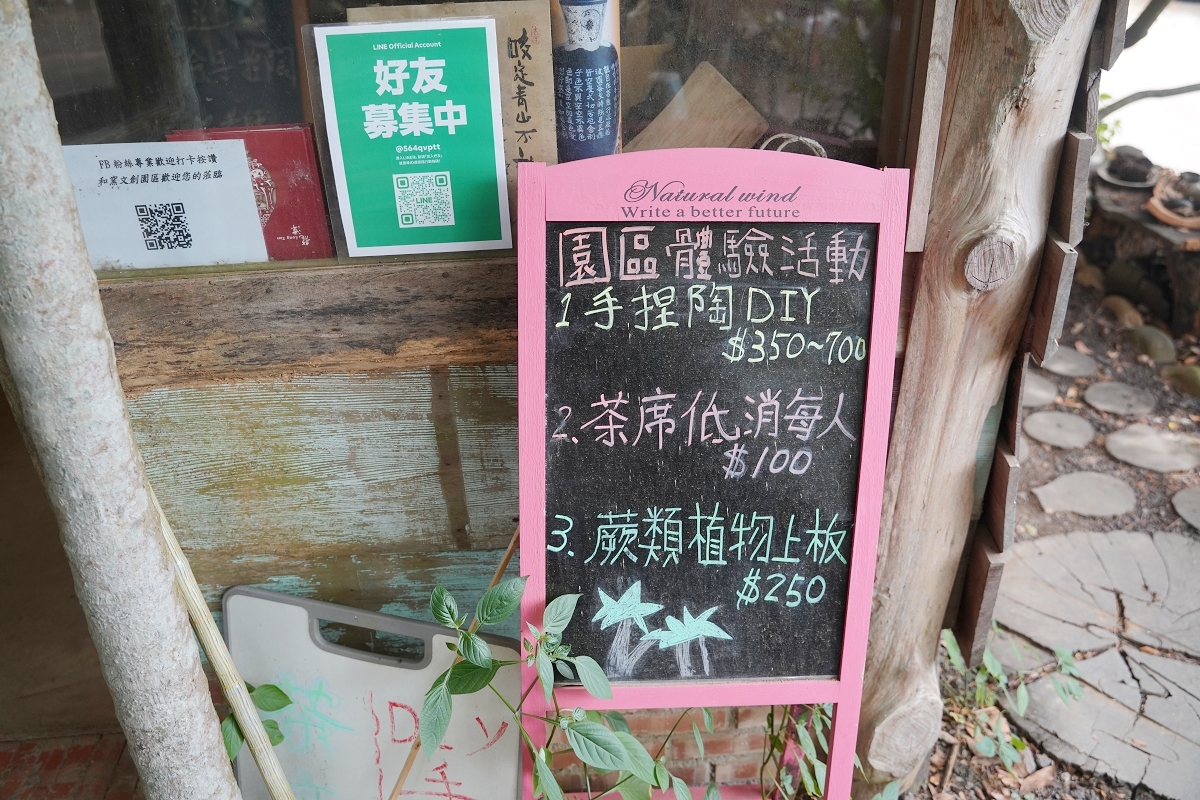 LINE Official Account
好友
募集中
@564qvptt
LINE
FB粉絲專業歡迎打卡按讚
和窯文創園區歡迎您的蒞臨
Natural wind
Write a better future
園區體驗活動
1手捏陶DIY
$350~700
2.茶席低消每人
$100
3.蕨類植物上板
$250
茶
DIY
手